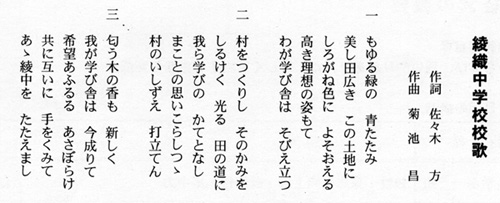 綾織中学校校歌
作詞 佐々木 方
作曲 菊池 昌
一 もゆる緑の 青たたみ
美し田広き この土地に
しろがね色に よそおえる
高き理想の 姿もて
わが学び舎は そびえ立つ
二 村をつくりし そのかみを
しるけく 光る 田の道に
我ら学びの かてとなし
まことの思いこらしつゝ
村のいしずえ 打立てん
三 匂う木の香も 新しく
我が学び舎は 今成りて
希望あふるる あさぼらけ
共に互いに 手をくみて
あゝ綾中を たたえまし